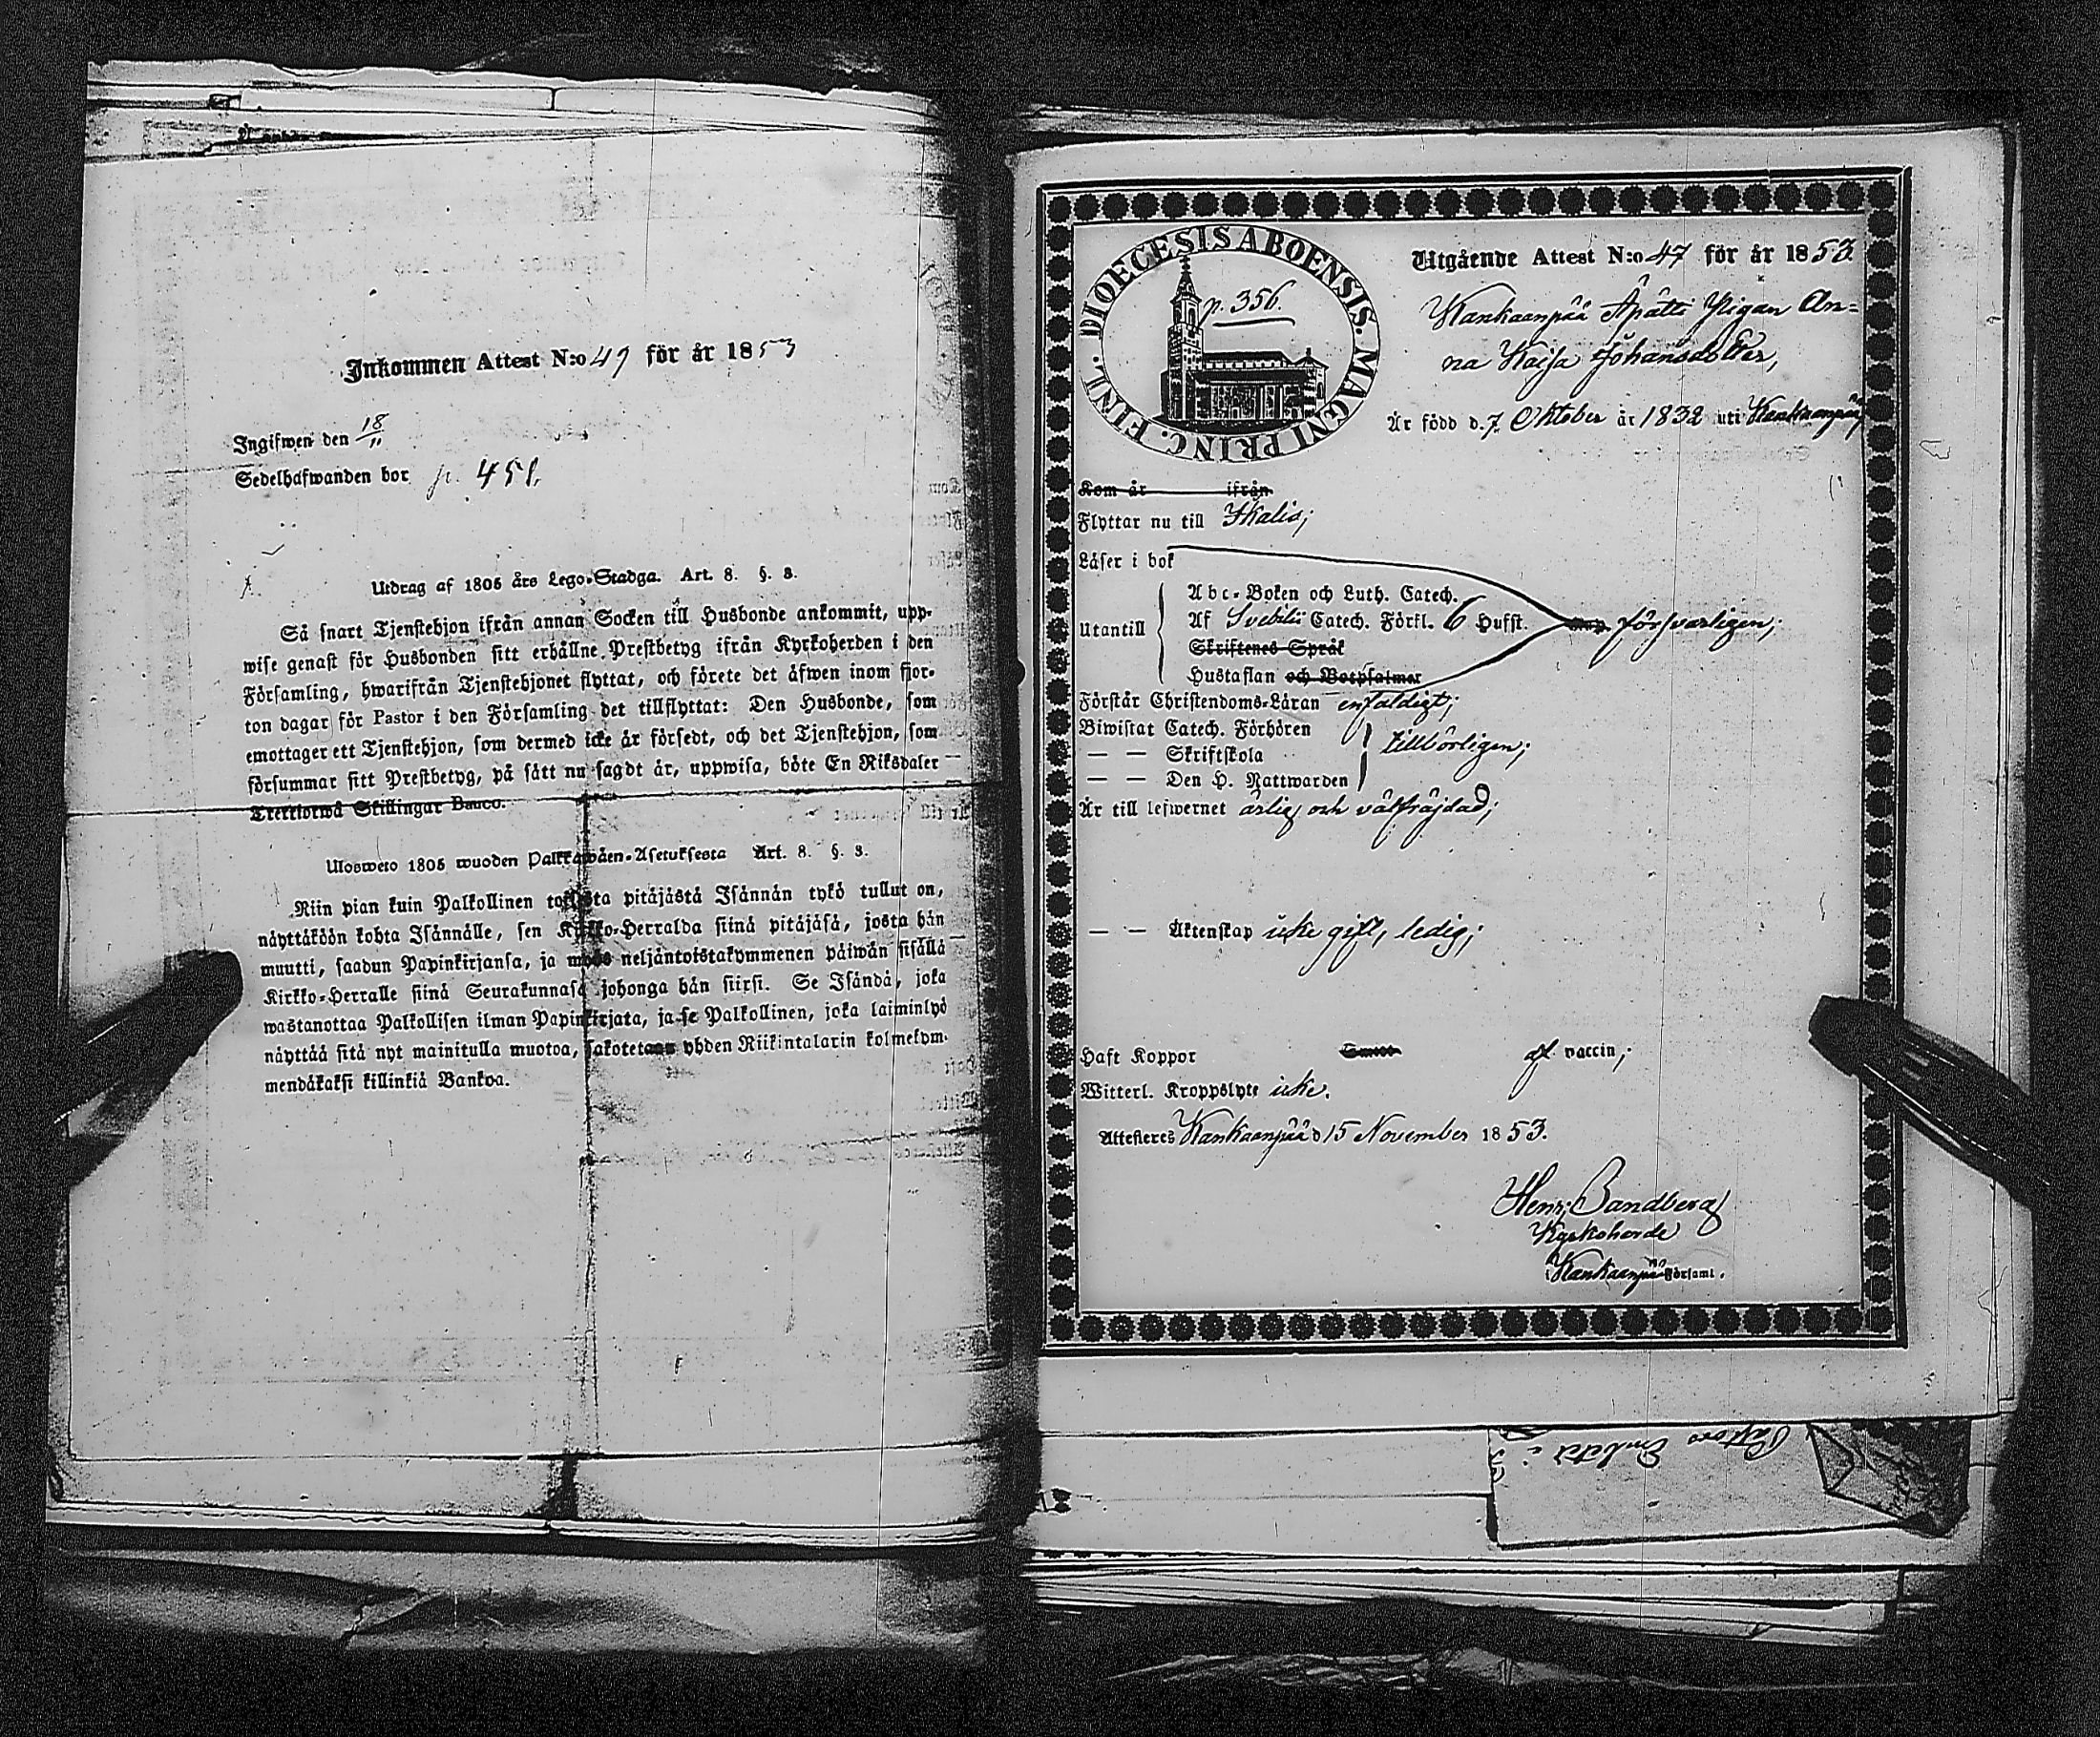 Inkommen Attest N:o 49 för år 1853
Ingifwen den 18/11
Sedelhafwanden bor p. 451.
Utdrag af 1805 års Lego-Stadga. Art. 8. §. 3.
Så snart Tjenstehjon ifrån annan Socken till Husbonde ankommit, upp-
wise genast för Husbonden sitt erhållne Prestbetyg ifrån Kyrkoherden i den
Församling, hwarifrån Tjenstehjonet flyttat, och förete det äfwen inom fjor-
ton dagar för Pastor i den Församling det tillflyttat: Den Husbonde, som
emottager ett Tjenstehjon, som dermed icke är försedt, och det Tjenstehjon, som
försummar sitt Prestbetyg, på sätt nu sagdt är, uppwisa, böte En Riksdaler
Trettiotwå Skillingar Banco.
Ulosweto 1805 wuoden Palkkawäen-Asetuksesta Art. 8. §. 3.
Niin pian kuin Palkollinen toisesta pitäjästä Isännän tykö tullut on,
näyttäköön kohta Isännälle, sen Kirkko-Herralda siinä pitäjäsä, josta hän
muutti, saadun Papinkirjansa, ja myös neljäntoistakymmenen päiwän sisällä
Kirkko-Herralle siinä Seurakunnasa johonga hän siirsi. Se Isändä, joka
wastanottaa Palkollisen ilman Papinkirjata, ja se Palkollinen, joka laiminlyö
näyttää sitä nyt mainitulla muotoa, sakotetaan yhden Riikintalarin kolmekym-
mendäkaksi killinkiä Bankoa.
DIOECESIS ABOENSIS. MAGNI PRINC. FINL.
p. 356.
Utgående Attest N:o 47 för år 1853.
Kankaanpää Äpätti Pigan An-
na Kajsa Johansdotter,
Är född d. 7. Oktober år 1832 uti Kankaanpää
Kom år ifrån
Flyttar nu till Ikalis;
Läser i bok
Utantill
Abc-Boken och Luth. Catech.
Af Svebilii Catech. Förkl. 6 Hufst. försvarligen;
Skriftenes Språk
Hustaflan och Botpsalmer
Förstår Christendoms-Läran enfaldigt;
Biwistat Catech. Förhören
— — Skriftskola tillbörligen;
— — Den H. Nattwarden
Är till lefwernet ärlig och välfräjdad;
— — Äktenskap icke gift, ledig;
Haft Koppor af vaccin;
Witterl. Kroppslyte icke.
Attesteres Kankaanpää d 15 November 1853.
Henr. Sandberg
Kyrkoherde
i Kankaanpää Församl.
Pastors Embetet i